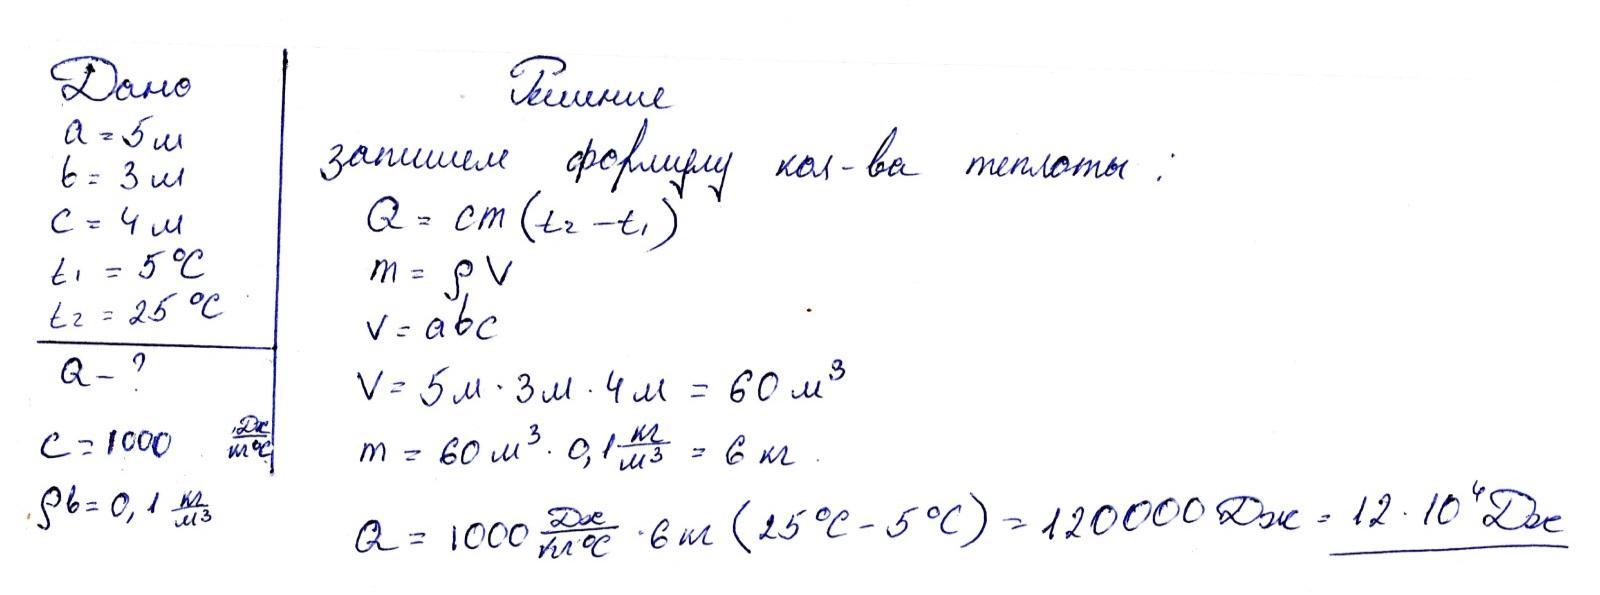 Дано
a = 5 м
b = 3 м
c = 4 м
t₁ = 5 °C
t₂ = 25 °C
Q – ?
c = 1000 Дж/кг°C
ρв = 0,1 кг/м³
Решение
запишем формулу кол-ва теплоты :
Q = cm (t₂ – t₁)
m = ρ V
V = abc
V = 5 м · 3 м · 4 м = 60 м³
m = 60 м³ · 0,1 кг/м³ = 6 кг.
Q = 1000 Дж/кг°C · 6 кг (25°C – 5°C) = 120000 Дж = 12 · 10⁴ Дж